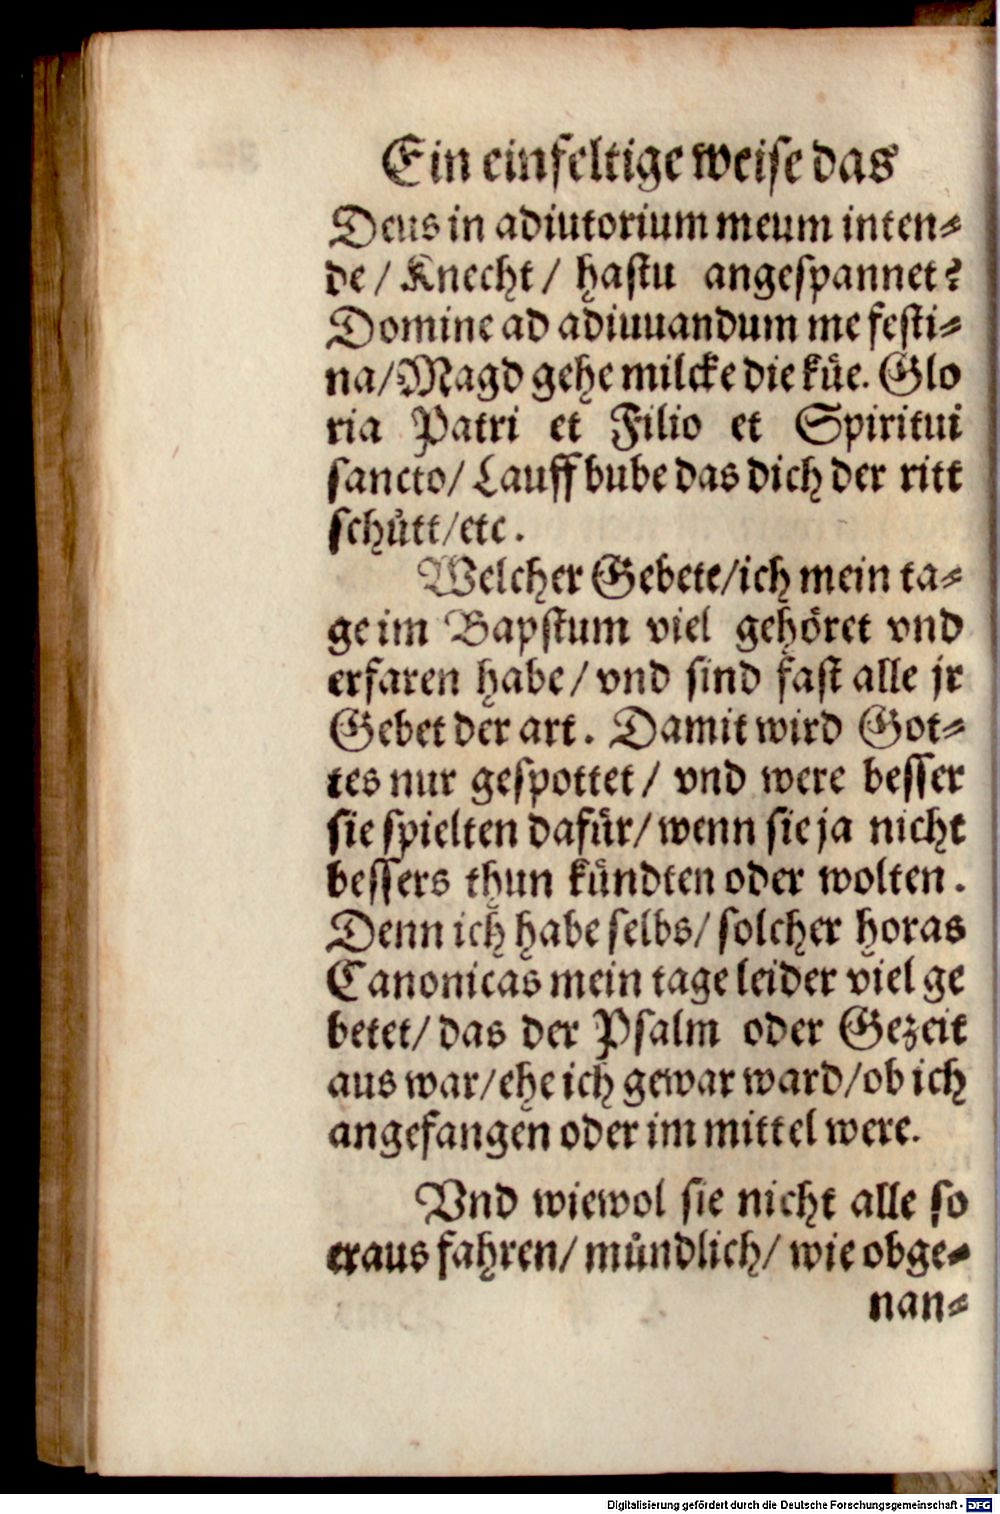 Ein einfeltige weise das
Deus in adiutorium meum inten⸗
de / Knecht / hastu angespannet?
Domine ad adiuuandum me festi⸗
na/Magd gehe milcke die küe. Glo
ria Patri et Filio et Spiritui
sancto/ Lauff bube das dich der ritt
schütt/etc.
Welcher Gebete/ich mein ta⸗
ge im Bapstum viel gehöret vnd
erfaren habe/ vnd sind fast alle jr
Gebet der art. Damit wird Got⸗
tes nur gespottet/ vnd were besser
sie spielten dafür/ wenn sie ja nicht
bessers thun kündten oder wolten.
Denn ich habe selbs/ solcher horas
Canonicas mein tage leider viel ge
betet/ das der Psalm oder Gezeit
aus war/ehe ich gewar ward/ob ich
angefangen oder im mittel were.
Vnd wiewol sie nicht alle so
eraus fahren/ mündlich/ wie obge⸗
nan⸗
Digitalisierung gefördert durch die Deutsche Forschungsgemeinschaft - DFG